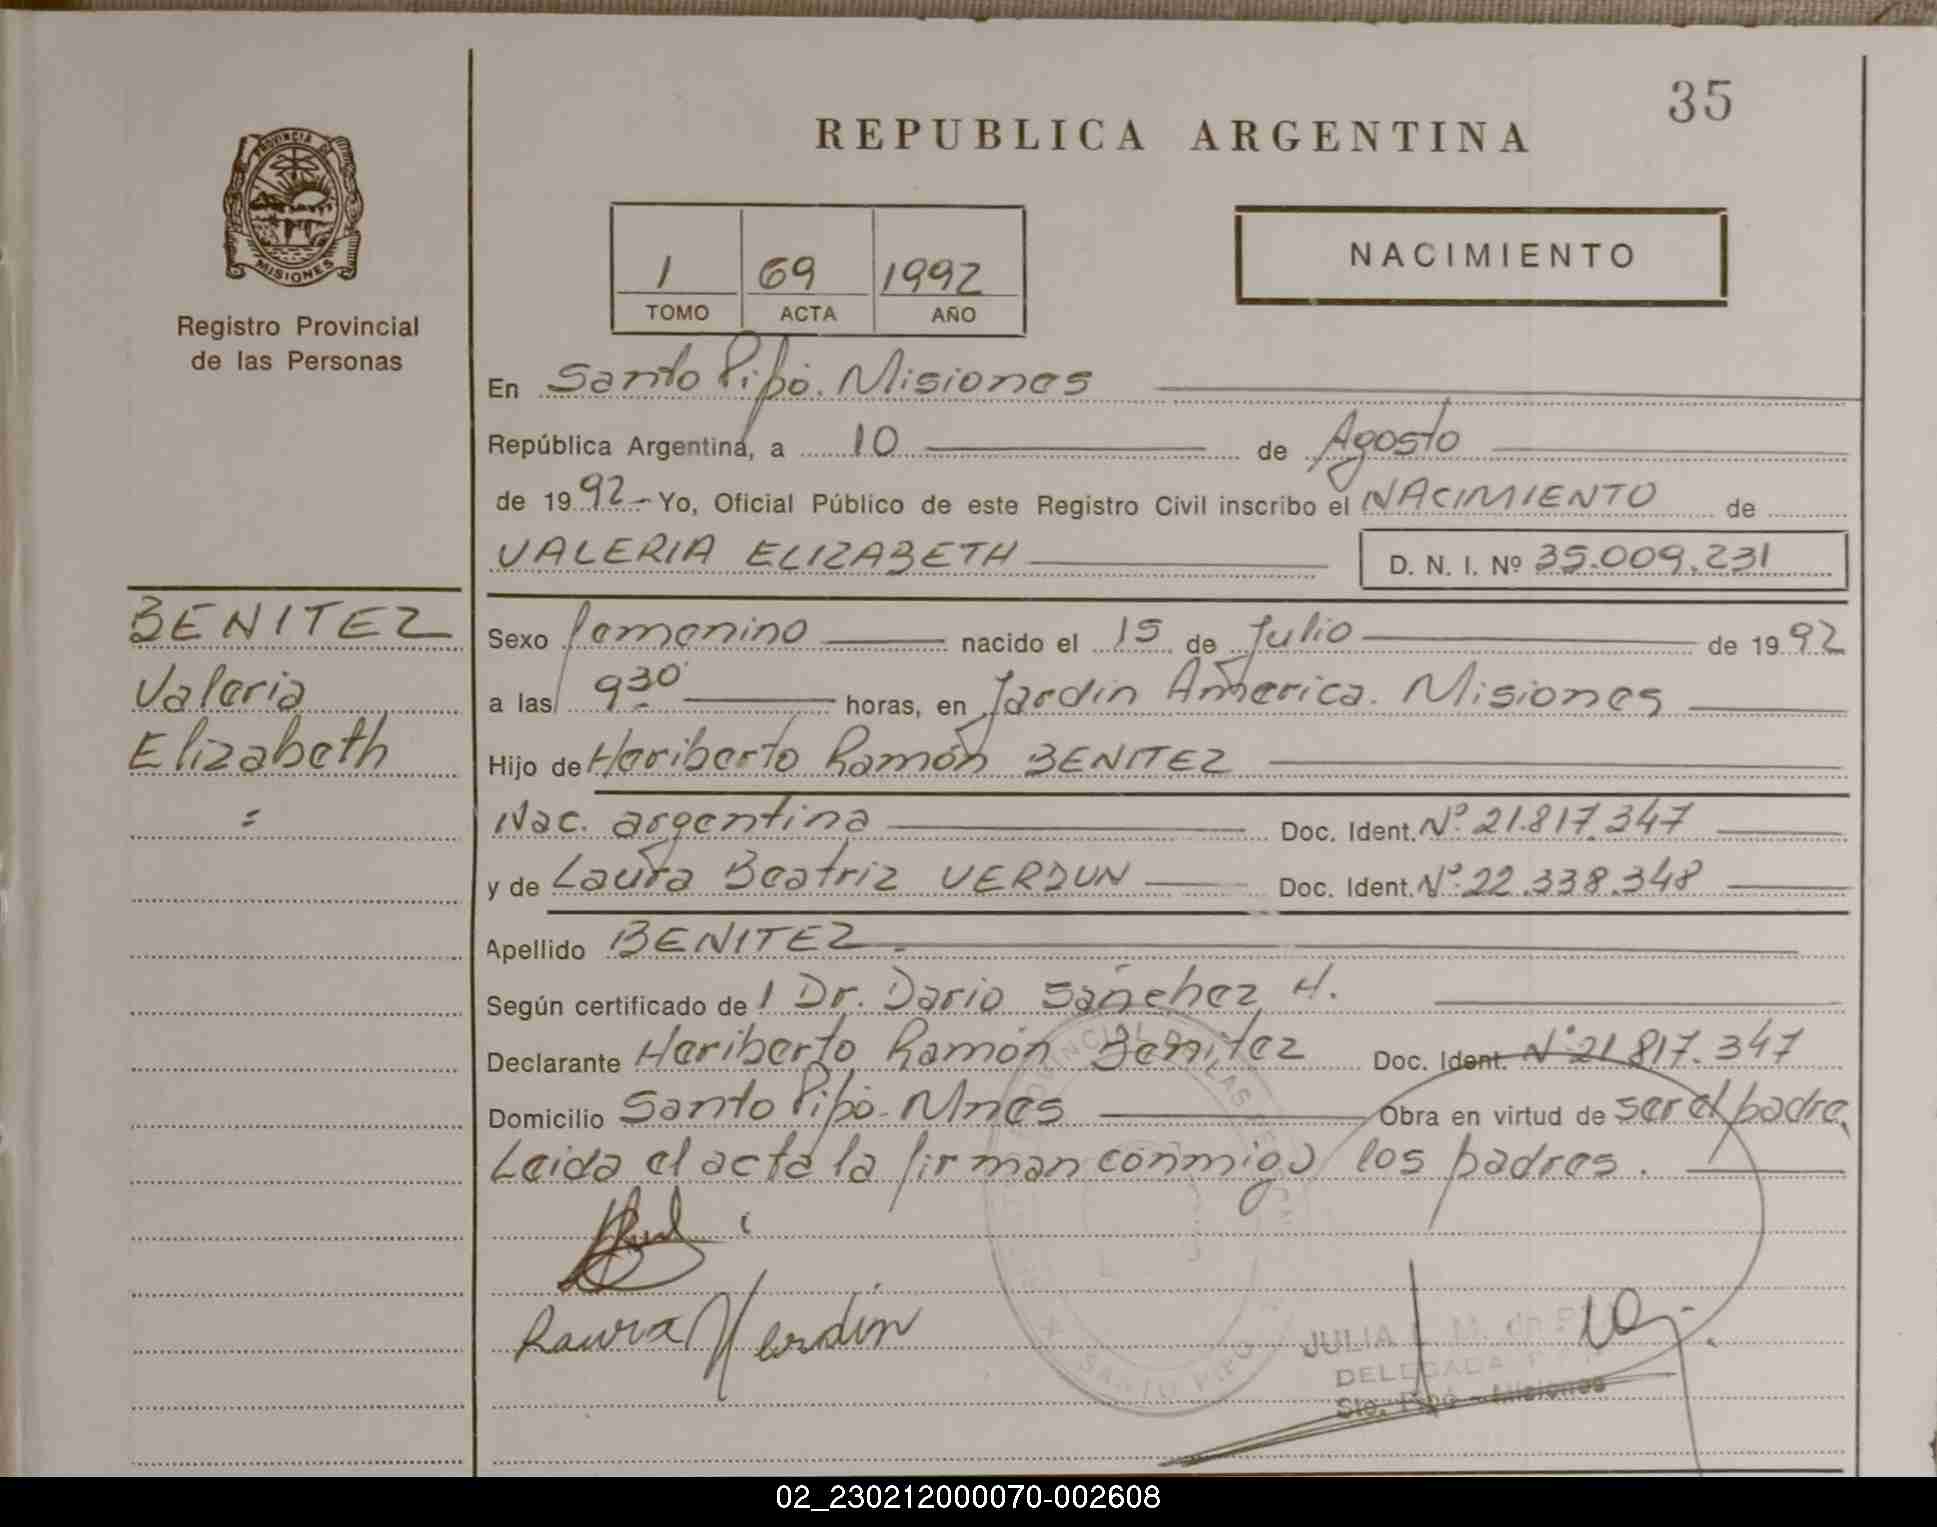 35
REPUBLICA ARGENTINA
PROVINCIA DE
MISIONES
Registro Provincial
de las Personas
1 69 1992
TOMO ACTA AÑO
NACIMIENTO
En Santo Pipó. Misiones
República Argentina, a 10 de Agosto
de 1992.- Yo, Oficial Público de este Registro Civil inscribo el NACIMIENTO de
VALERIA ELIZABETH D. N. I. Nº 35.009.231
BENITEZ
Valeria
Elizabeth
=
Sexo femenino nacido el 15 de Julio de 1992
a las 9 30 horas, en Jardin America. Misiones
Hijo de Heriberto Ramón BENITEZ
Nac. argentina Doc. Ident. Nº 21.817.347
y de Laura Beatriz VERDUN Doc. Ident. Nº 22.338.348
Apellido BENITEZ.
Según certificado de 1 Dr. Dario Sánchez H.
Declarante Heriberto Ramón Benitez Doc. Ident. Nº 21.817.347
Domicilio Santo Pipó. Mnes Obra en virtud de ser el padre,
Leida el acta la firman conmigo los padres.
Laura Verdún
SANTO PIPO
JULIA M. de
DELEGADA
Sto. Pipó - Misiones
02_230212000070-002608